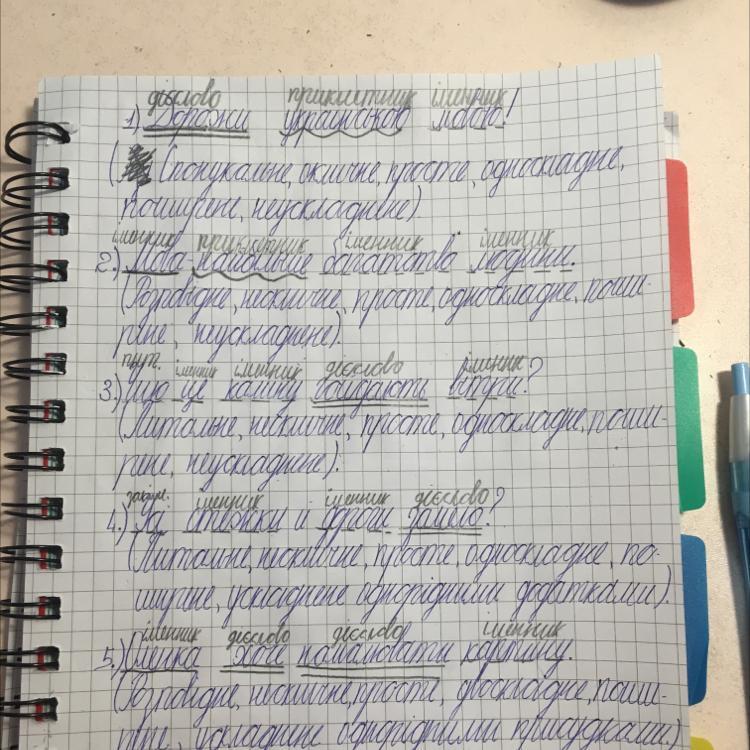 дієслово прикметник іменник
1) Дорожи українською мовою!
(Спонукальне, окличне, просте, односкладне,
поширене, неускладнене).
іменник прикметник іменник іменник
2.) Мова - найбільше багатство людини.
(Розповідне, неокличне, просте, односкладне, поши-
рене, неускладнене).
іменник іменник дієслово іменник
3.) що це калину вітри?
(Питальне, неокличне, просте, односкладне, поши-
рене, неускладнене).
іменник іменник дієслово
4.) стежки й дороги замело?
(Питальне, неокличне, просте, односкладне, по-
ширене, ускладнене однорідними додатками).
іменник дієслово дієслово іменник
5.) Оленка хоче намалювати картину.
(Розповідне, неокличне, просте, двоскладне, поши-
рене, ускладнене однорідними присудками.)